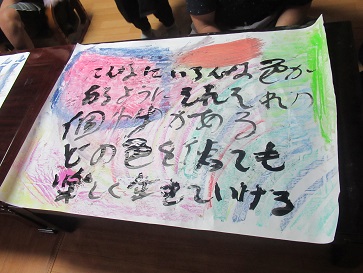 こんなにいろんな色が
あるようにそれぞれの
個性がある
どの色を使っても
楽しく生きていける